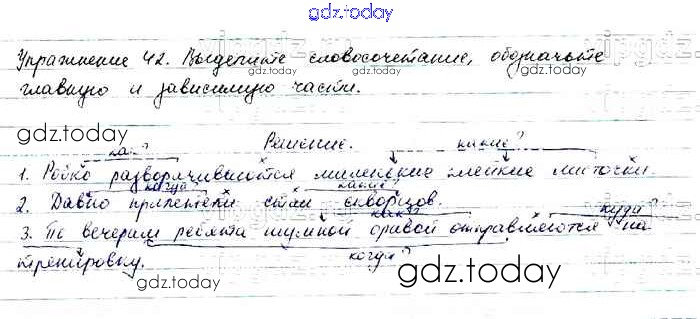 gdz.today
Упражнение 42. Выделите словосочетание, обозначьте
gdz.today gdz.today
главную и зависимую части.
gdz.today
Решение.
как? какие?
1. Робко разворачиваются миленькие клейкие листочки.
когда? какие?
2. Давно прилетели стаи скворцов.
как? куда?
3. По вечерам ребята шумной оравой отправляются на
тренировку. когда?
gdz.today gdz.today
gdz.today